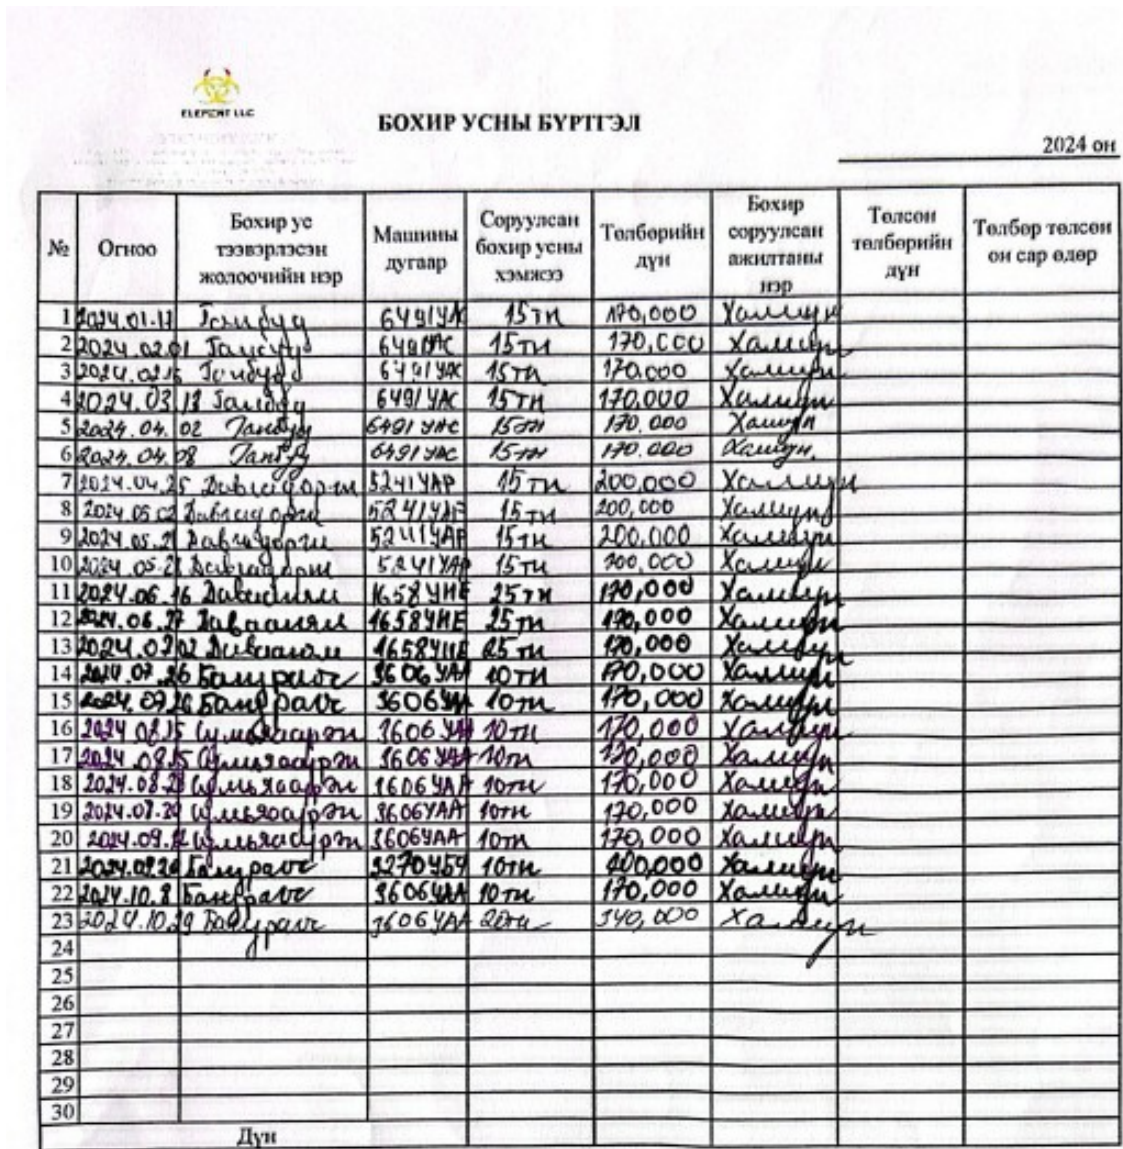 ELEMENT LLC
БОХИР УСНЫ БҮРТГЭЛ
2024 он
№ Огноо Бохир ус тээвэрлэсэн жолоочийн нэр Машины дугаар Соруулсан бохир усны хэмжээ Төлбөрийн дүн Бохир соруулсан ажилтаны нэр Төлсөн төлбөрийн дүн Төлбөр төлсөн он сар өдөр
1 2024.01. 6491УАС 15тн 170,000 Халиун
2 2024.02.01 6491УАС 15тн 170,000 Халиун
3 2024.02. 6491УАС 15тн 170.000 Халиун
4 2024.03.13 6491УАС 15тн 170.000 Халиун
5 2024.04.02 Ганбуд 6491УАС 15тн 170.000 Халиун
6 2024.04.08 6491УАС 15тн 170.000 Халиун.
7 2024.04.25 Даваадорж 5241УАР 15тн 200,000 Халиун
8 2024.05.02 Даваадорж 5241УАР 15тн 200,000 Халиун
9 2024.05.21 Даваадорж 5241УАР 15тн 200,000 Халиун
10 2024.05. Даваадорж 5241УАР 15тн 200,000 Халиун
11 2024.06.16 Даваанямм 1658УНЕ 25тн 170,000 Халиун
12 2024.06.27 Давааням 1658УНЕ 25тн 170,000 Халиун
13 2024.07.02 Давааням 1658УНЕ 25тн 170,000 Халиун
14 2024.07.26 3606УАА 10тн 170,000 Халиун
15 2024.07.26 3606УАА 10тн 170,000 Халиун
16 2024.08.15 3606УАА 10тн 170,000 Халиун
17 2024.08.15 3606УАА 10тн 170,000 Халиун
18 2024.08. 3606УАА 10тн 170,000 Халиун
19 2024.08.29 3606УАА 10тн 170,000 Халиун
20 2024.09. 3606УАА 10тн 170,000 Халиун
21 2024.09. 10тн Халиун
22 2024.10.8 3606УАА 10тн 170,000 Халиун
23 2024.10.29 3606УАА 20тн 340,000 Халиун
24
25
26
27
28
29
30
Дүн